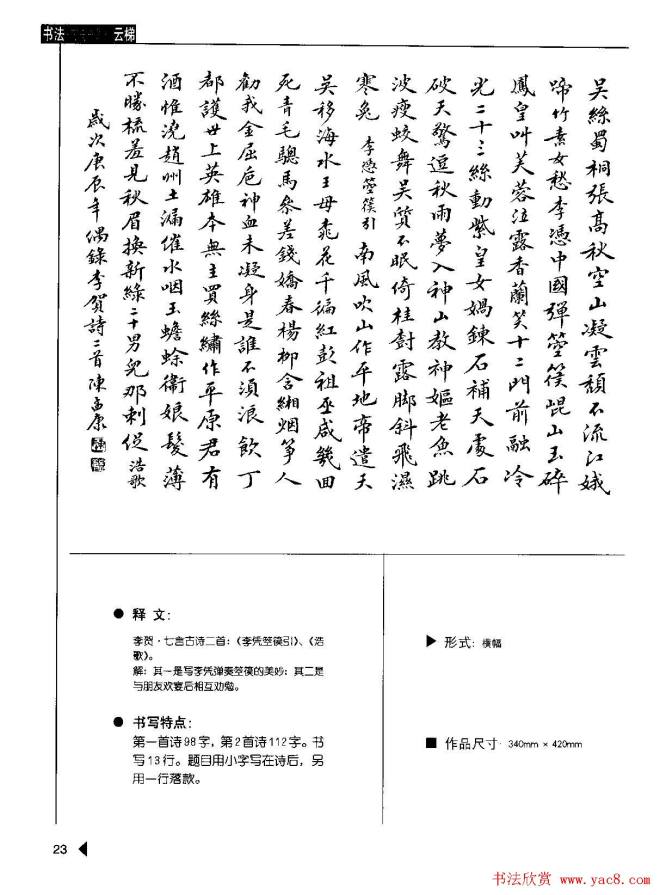 书法 云梯
吳絲蜀桐張高秋空山凝雲頹不流江娥
啼竹素女愁李憑中國彈箜篌崐山玉碎
鳳皇叫芙蓉泣露香蘭笑十二門前融冷
光二十三絲動紫皇女媧鍊石補天處石
破天驚逗秋雨夢入神山教神嫗老魚跳
波瘦蛟舞吳質不眠倚桂樹露脚斜飛濕
寒兔 李憑箜篌引 南風吹山作平地帝遣天
吳移海水王母桃花千徧紅彭祖巫咸幾回
死青毛驄馬參差錢嬌春楊柳含緗烟箏人
勸我金屈卮神血未凝身是誰不須浪飲丁
都護世上英雄本無主買絲繡作平原君有
酒惟澆趙州土漏催水咽玉蟾蜍衛娘髮薄
不勝梳羞見秋眉換新綠二十男兒那刺促 浩歌
歲次庚辰年偶錄李賀詩二首陳康
● 释 文:
李贺·七言古诗二首:《李凭箜篌引》、《浩
歌》。
解: 其一是写李凭弹奏箜篌的美妙; 其二是
与朋友欢宴后相互劝勉。
● 书写特点:
第一首诗98字, 第2首诗112字。书
写13行。题目用小字写在诗后, 另
用一行落款。
▶ 形式: 横幅
■ 作品尺寸: 340mm × 420mm
23 ◀
书法欣赏 www.yac8.com